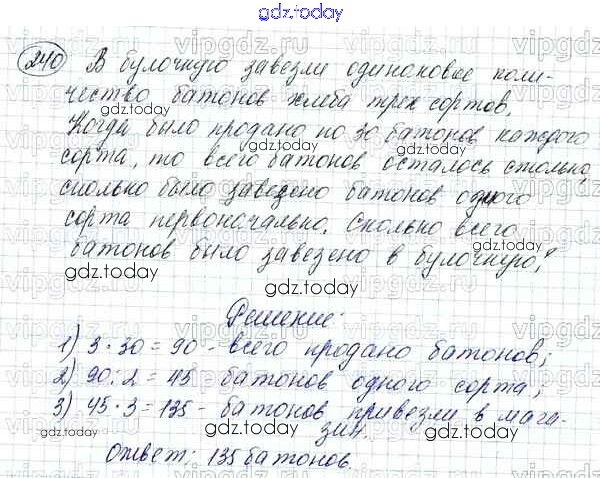 gdz.today
240 В булочную завезли одинаковое коли-
чество батонов хлеба трех сортов.
gdz.today
Когда было продано по 30 батонов каждого
сорта, то всего батонов осталось столько,
сколько было завезено батонов одного
сорта первоначально. Сколько всего
батонов было завезено в булочную?
gdz.today
Решение:
1) 3 · 30 = 90 - всего продано батонов;
2) 90 : 2 = 45 батонов одного сорта;
3) 45 · 3 = 135 - батонов привезли в мага-
зин.
Ответ: 135 батонов.
gdz.today